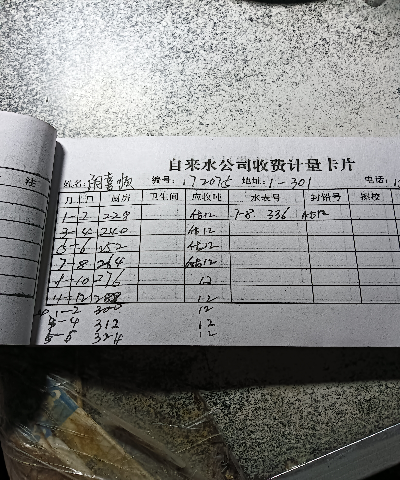 注
自来水公司收费计量卡片
姓名: 喜顺 编号: 172075 地址: 1-301 电话:
月 月 厨房 卫生间 应收吨 水表号 封铅号 报校
1-2 228 估12 7-8 336 估12
3-4 240 估12
5-6 252 估12
7-8 264 估12
9-10 276 12
11-12 288 12
1-2 300 12
3-4 312 12
5-6 324 12